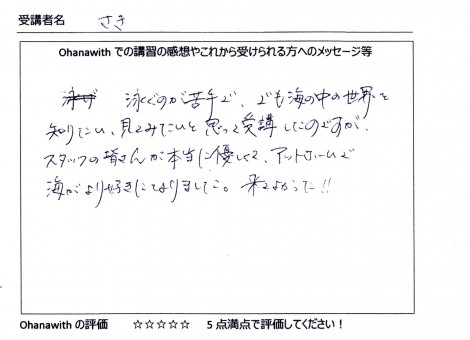 受講者名 さき
Ohanawith での講習の感想やこれから受けられる方へのメッセージ等
泳ぐのが苦手で、でも海の中の世界を
知りたい、見てみたいと思って受講したのですが、
スタッフの皆さんが本当に優しくて、アットホームで
海がより好きになりました。来てよかった!!
Ohanawith の評価 ☆☆☆☆☆ 5 点満点で評価してください！